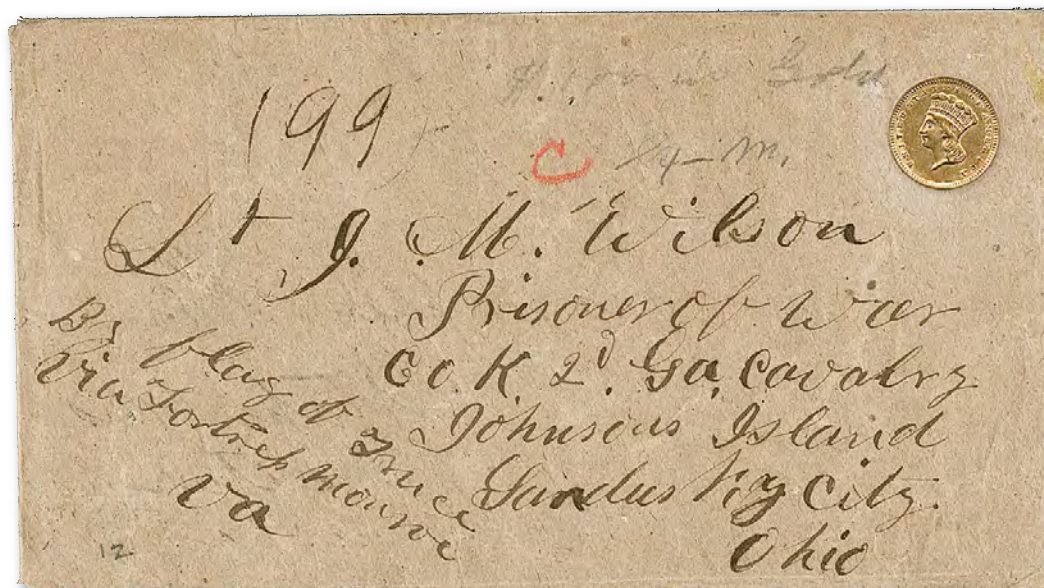 in Gold
199
C
Lt J. M. Wilson
Prisoner of War
Co. K 2d. Ga. Cavalry
Johnsons Island
Sandusky City.
Ohio
By flag of Truce
Via Fortress Monroe
Va
12